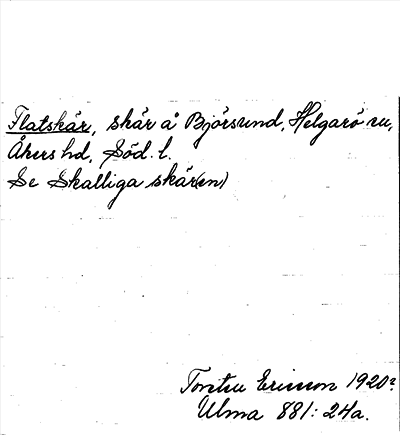 Flatskär, skär å Björsund, Helgarö sn,
Åkers hd, Söd. l.
Se Skalliga skär(en)
Torsten Ericsson 1920?
Ulma 881: 24a.